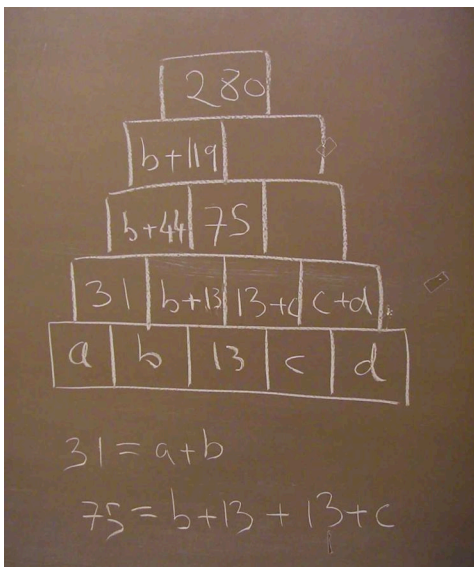 280
b+119
b+44 75
31 b+13 13+c c+d
a b 13 c d
31 = a+b
75 = b+13 + 13+c